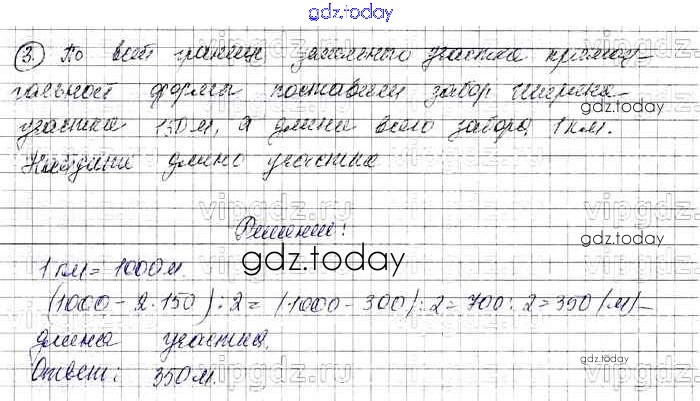 gdz.today
3. По всей границе земельного участка прямоу-
гольной формы поставили забор. Ширина
gdz.today
участка 150 м, а длина всего забора 1 км.
Найдите длину участка
vipgdz.ru
Решение:
gdz.today
gdz.today
1 км = 1000 м.
(1000 - 2·150) : 2 = (1000 - 300) : 2 = 700 : 2 = 350 (м) -
длина участка.
gdz.today
Ответ: 350 м.
vipgdz.ru